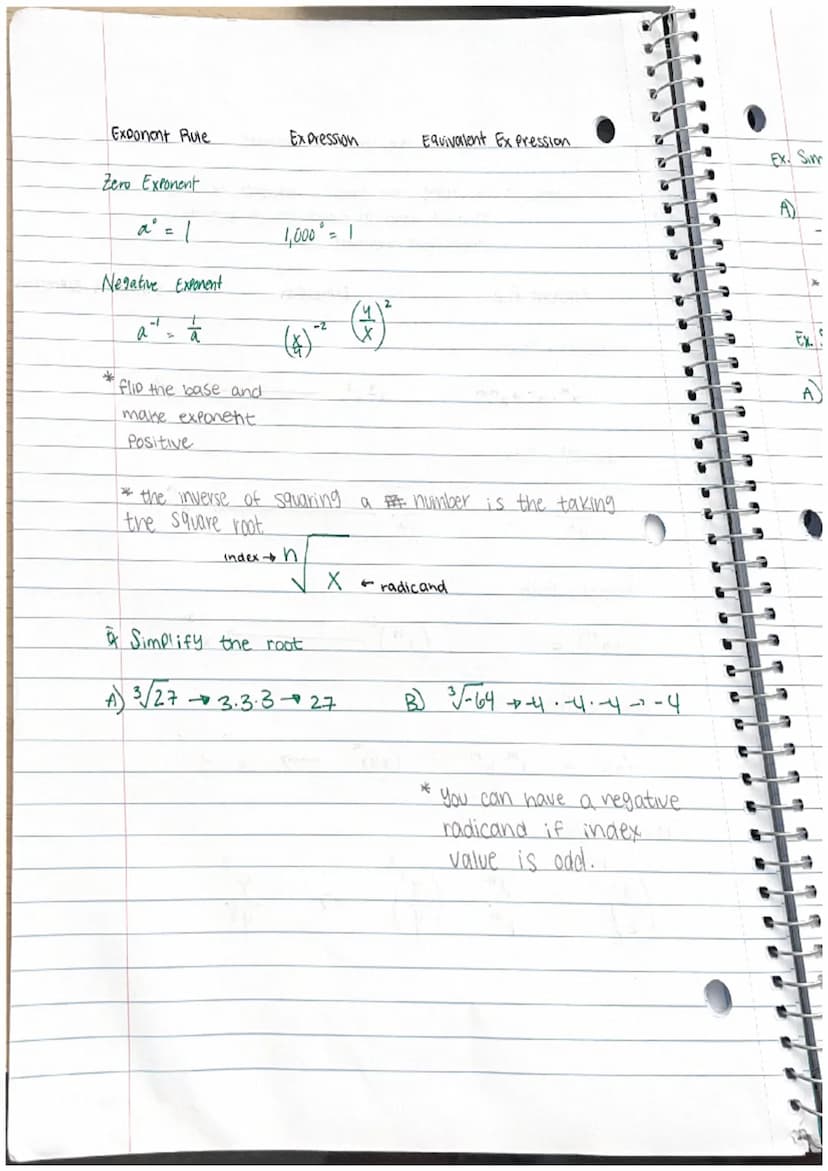 Exponent Rule Expression Equivalent Expression
Zero Exponent
a⁰ = 1 1,000⁰ = 1
Negative Exponent
a⁻¹ = 1/a (x/4)⁻² (4/x)²
* flip the base and
make exponent
positive
* the inverse of squaring a number is the taking
the square root
index → n√x ← radicand
Ex Simplify the root
A) ³√27 → 3·3·3 → 27 B) ³√-64 → -4 · -4 · -4 → -4
* you can have a negative
radicand if index
value is odd.
Ex. Sim
A)
-
*
Ex. S
A)